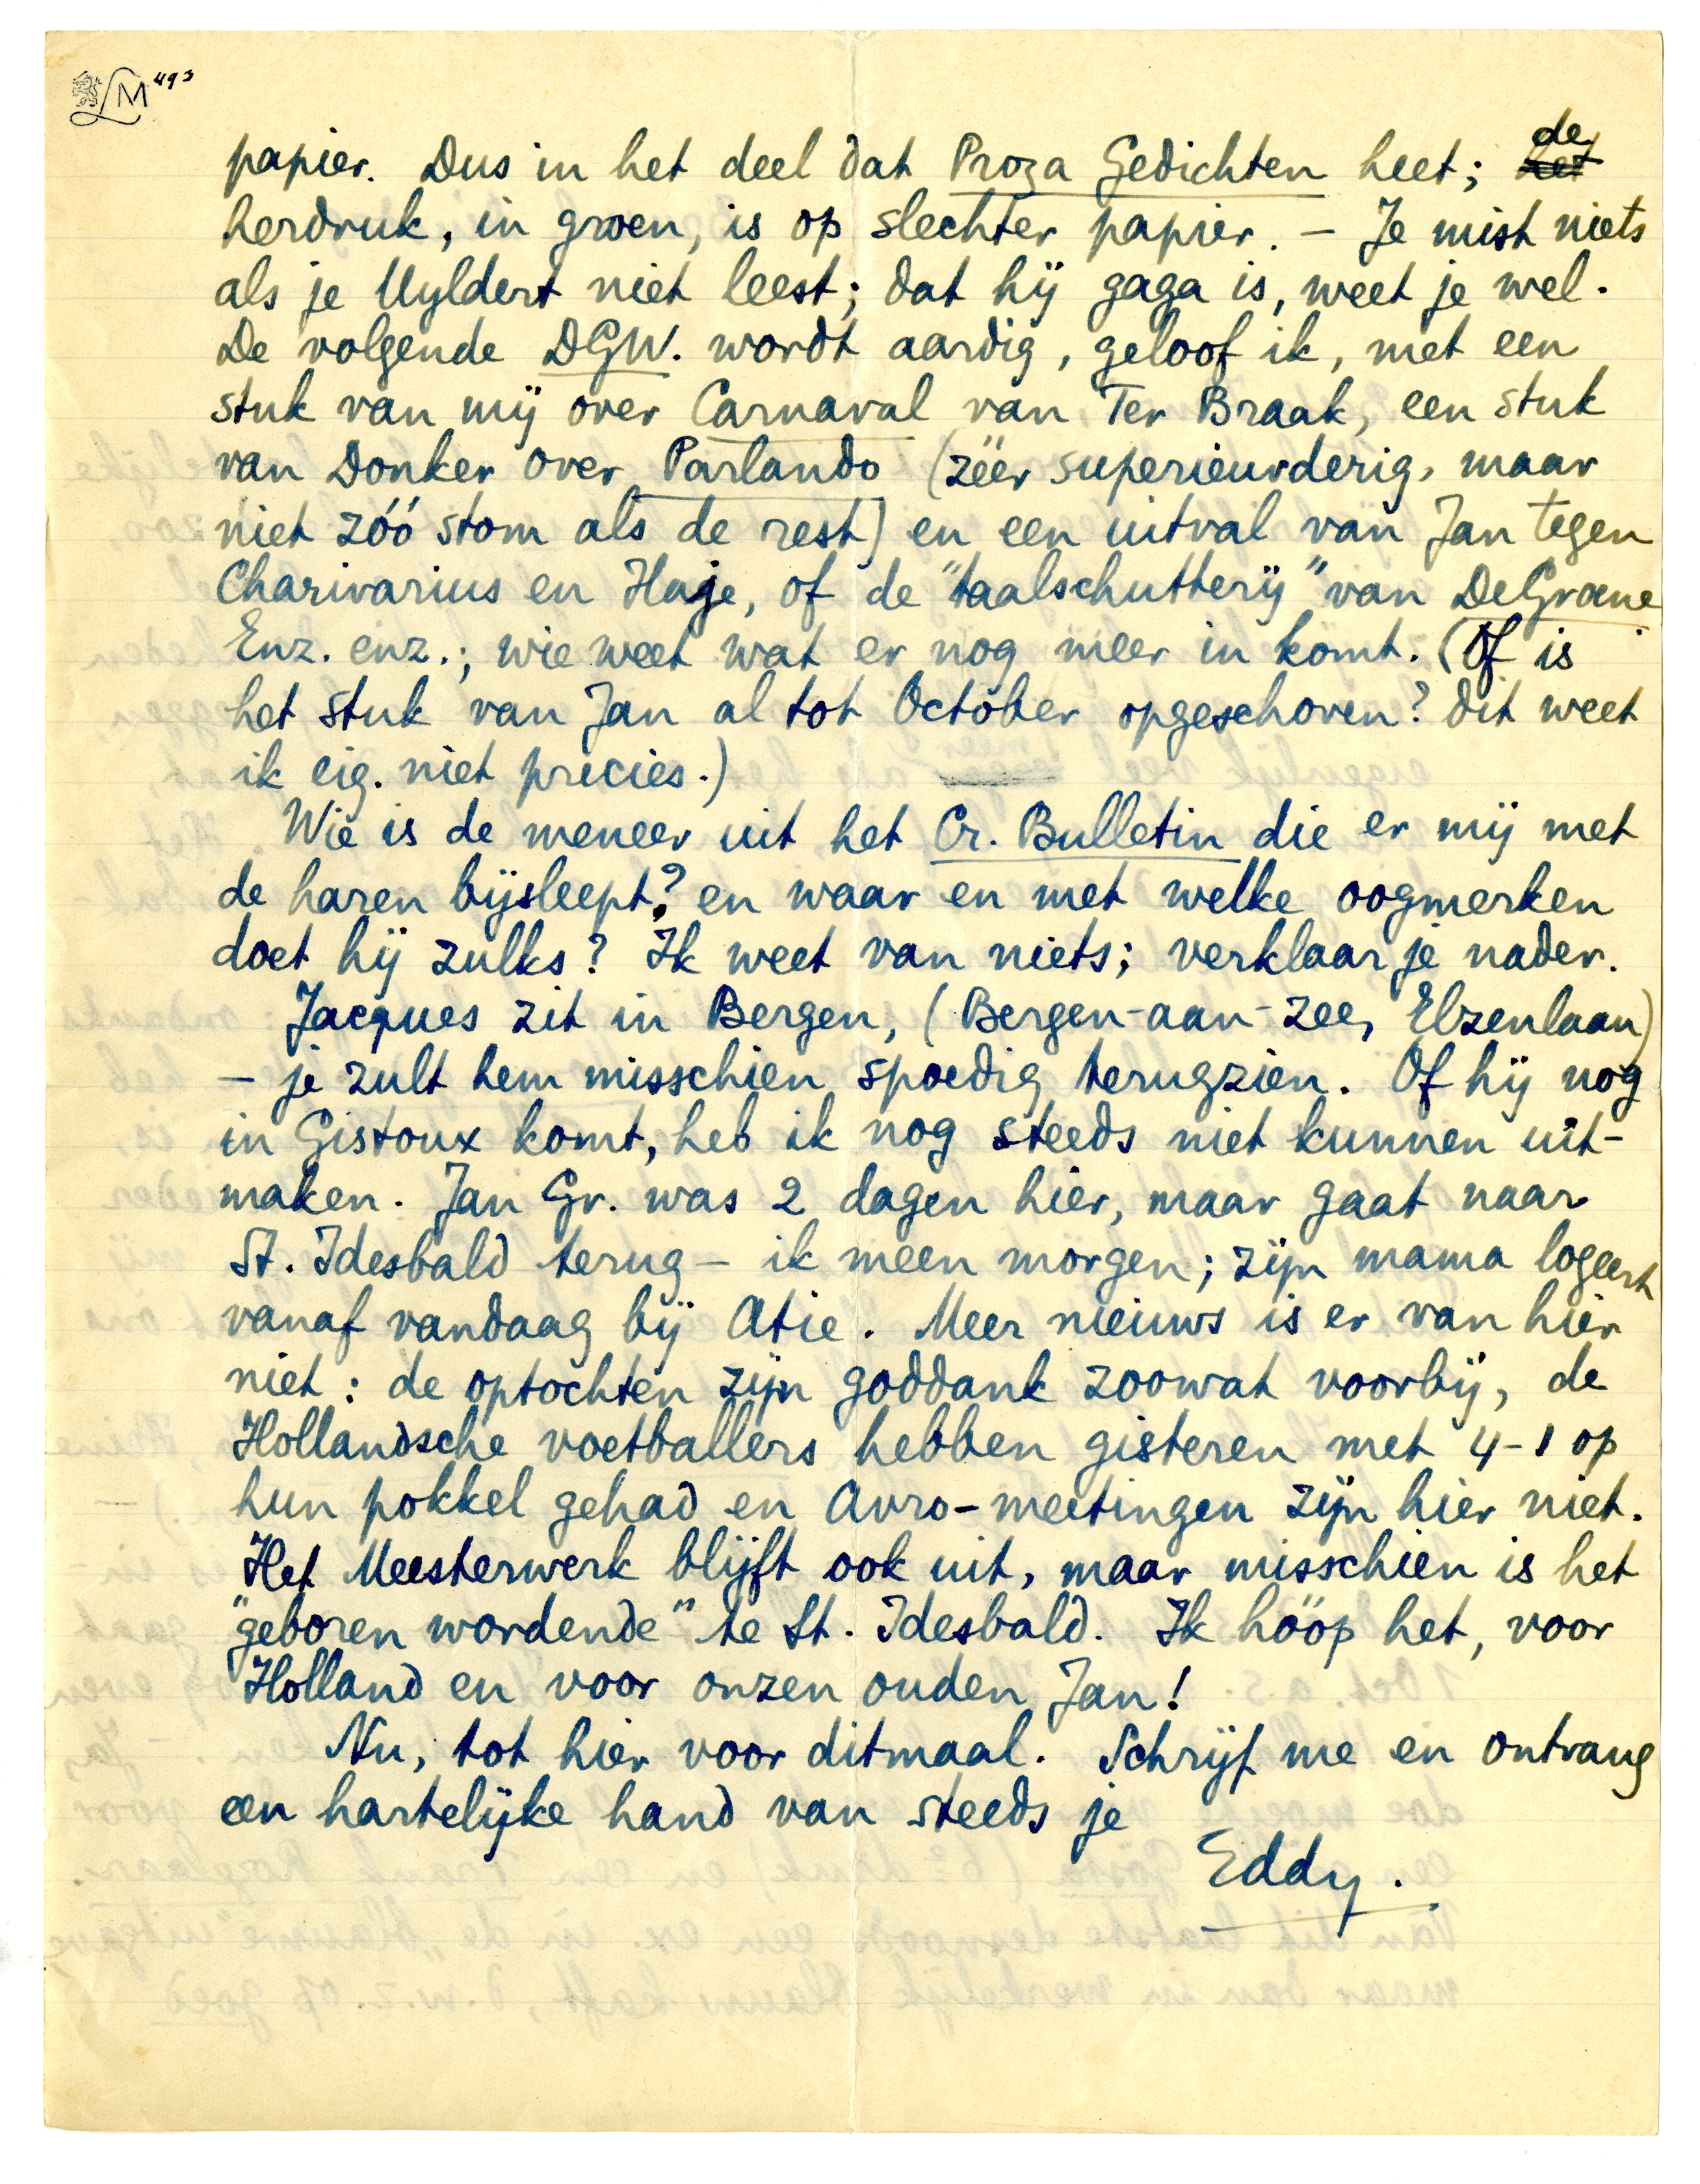 LM 493
papier. Dus in het deel dat Proza Gedichten heet; ~~het~~ de
herdruk, in groen, is op slechter papier. – Je mist niets
als je Uyldert niet leest; dat hij gaga is, weet je wel.
De volgende DGW. wordt aardig, geloof ik, met een
stuk van mij over Carnaval van Ter Braak, een stuk
van Donker over Parlando (zéér superieurderig, maar
niet zóó stom als de rest) en een uitval van Jan tegen
Charivarius en Haje, of de "taalschutterij" van De Groene
Enz. enz.; wie weet wat er nog meer in komt. (Of is
het stuk van Jan al tot October opgeschoven? dit weet
ik eig. niet precies.)
Wie is de meneer uit het Cr. Bulletin die er mij met
de haren bijsleept? en waar en met welke oogmerken
doet hij zulks? Ik weet van niets; verklaar je nader.
Jacques zit in Bergen, (Bergen-aan-zee, Elzenlaan)
– je zult hem misschien spoedig terugzien. Of hij nog
in Gistoux komt, heb ik nog steeds niet kunnen uit-
maken. Jan Gr. was 2 dagen hier, maar gaat naar
St. Idesbald terug – ik meen morgen; zijn mama logeert
vanaf vandaag bij Atie. Meer nieuws is er van hier
niet: de optochten zijn goddank zoowat voorbij, de
Hollandsche voetballers hebben gisteren met 4-1 op
hun pokkel gehad en Avro-meetingen zijn hier niet.
Het Meesterwerk blijft ook uit, maar misschien is het
"geboren wordende" te St. Idesbald. Ik hóóp het, voor
Holland en voor onzen ouden Jan!
Nu, tot hier voor ditmaal. Schrijf me en ontvang
een hartelijke hand van steeds je
Eddy.